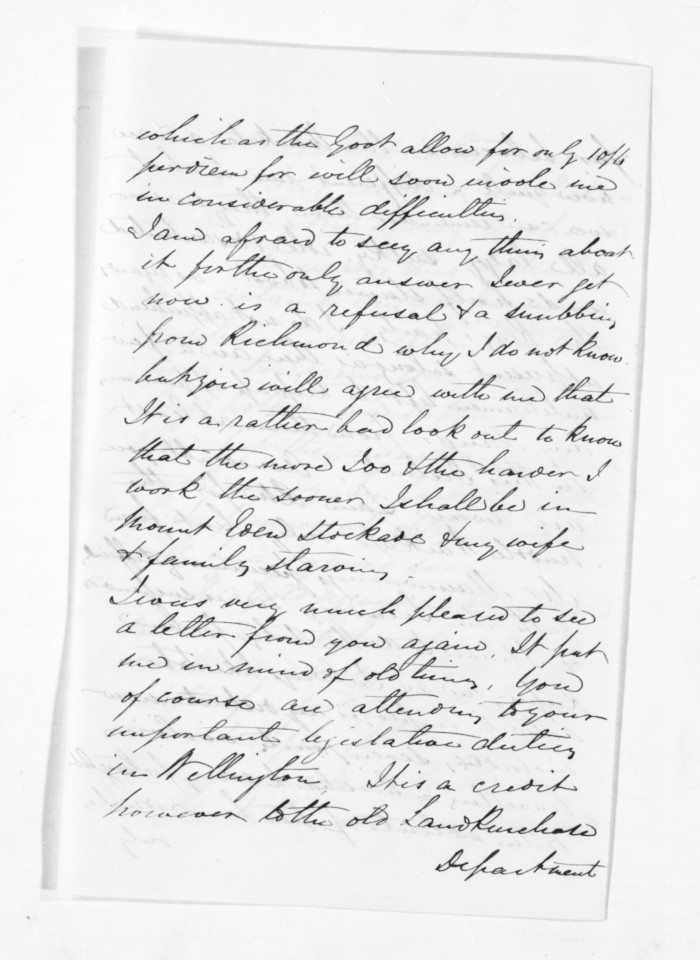 which as the Govt allow for only 10/6
per diem for will soon invole me
in considerable difficulties.
I am afraid to say any thing about
it for the only answer I ever get
now is a refusal & a snubbing
from Richmond why I do not know
but you will agree with me that
It is a rather bad look out to know
that the more I do & the harder I
work the sooner I shall be in
Mount Eden Stockade & my wife
& family starving.
I was very much pleased to see
a letter from you again. It put
me in mind of old times. You
of course are attending to your
important legislative duties
in Wellington. It is a credit
however to the old Land Purchase
Department